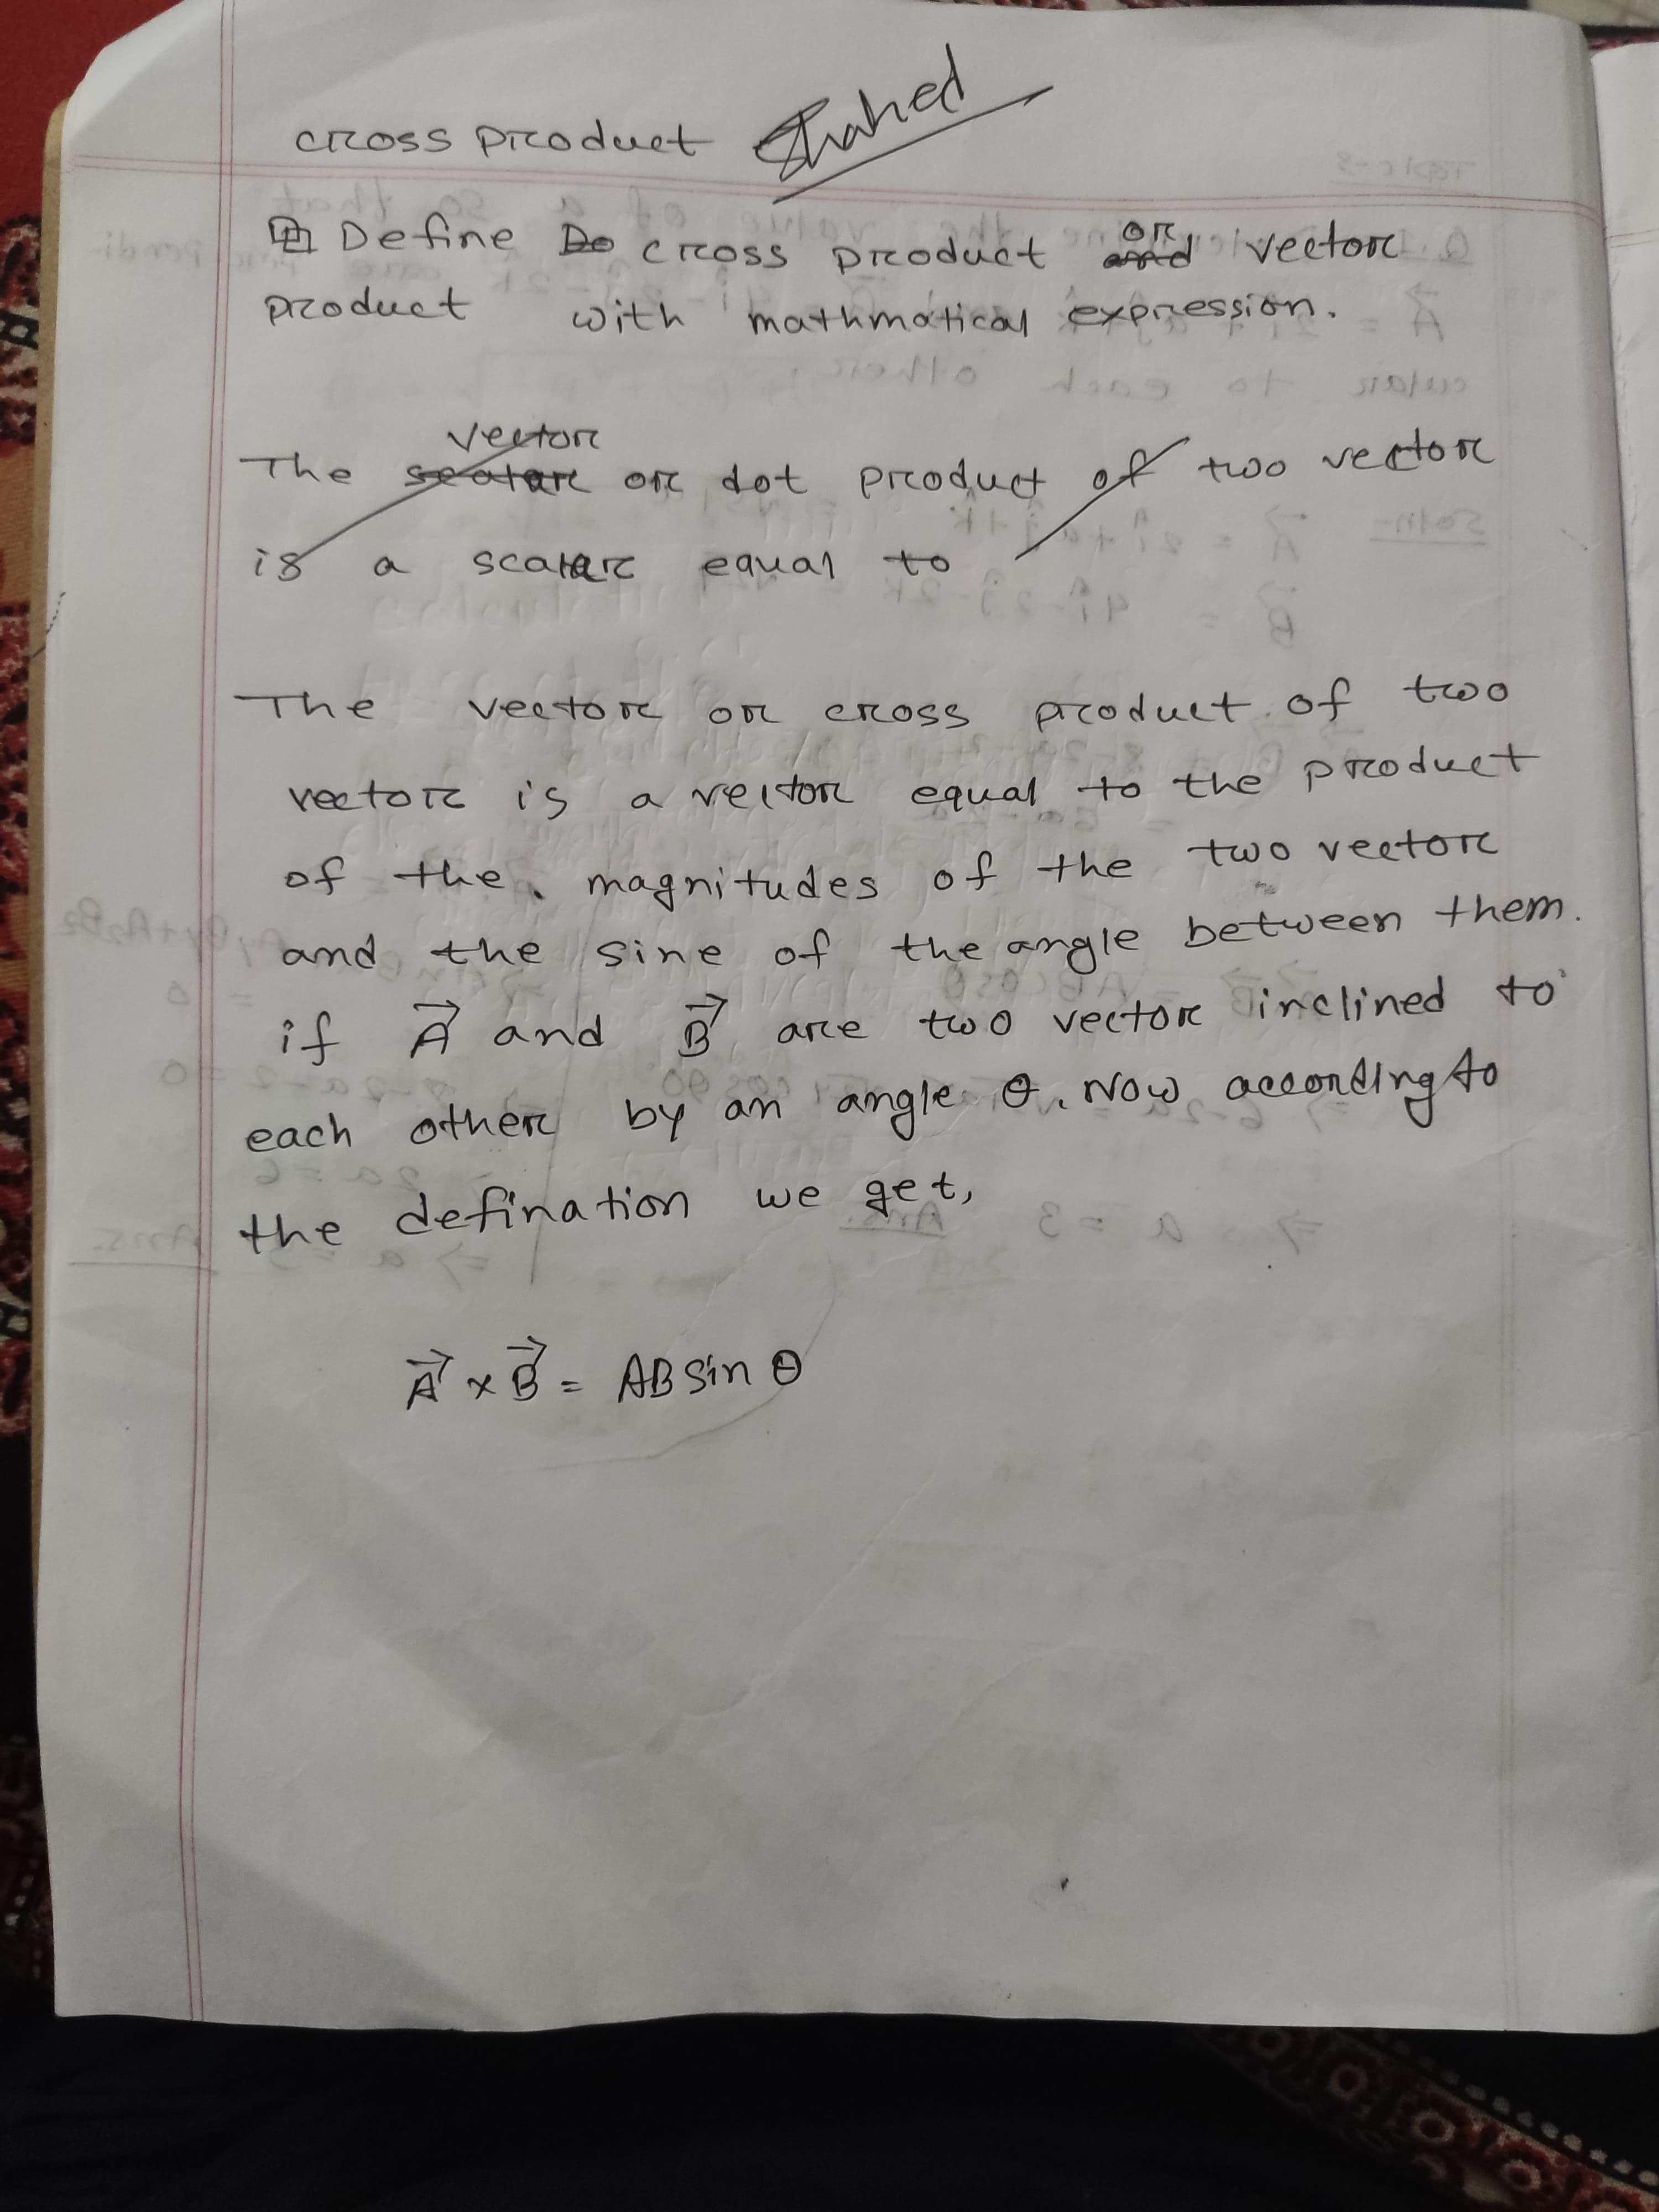 cross product Shahed
Define Do cross product and or vector
product with mathmatical expression.
vector
The scalar or dot product of two vector
is a scalar equal to
The vector or cross product of two
vector is a vector equal to the product
of the. magnitudes of the two vector
and the sine of the angle between them.
if A⃗ and B⃗ are two vector inclined to
each other by an angle θ. Now according to
the defination we get,
A⃗ × B⃗ = AB sin θ